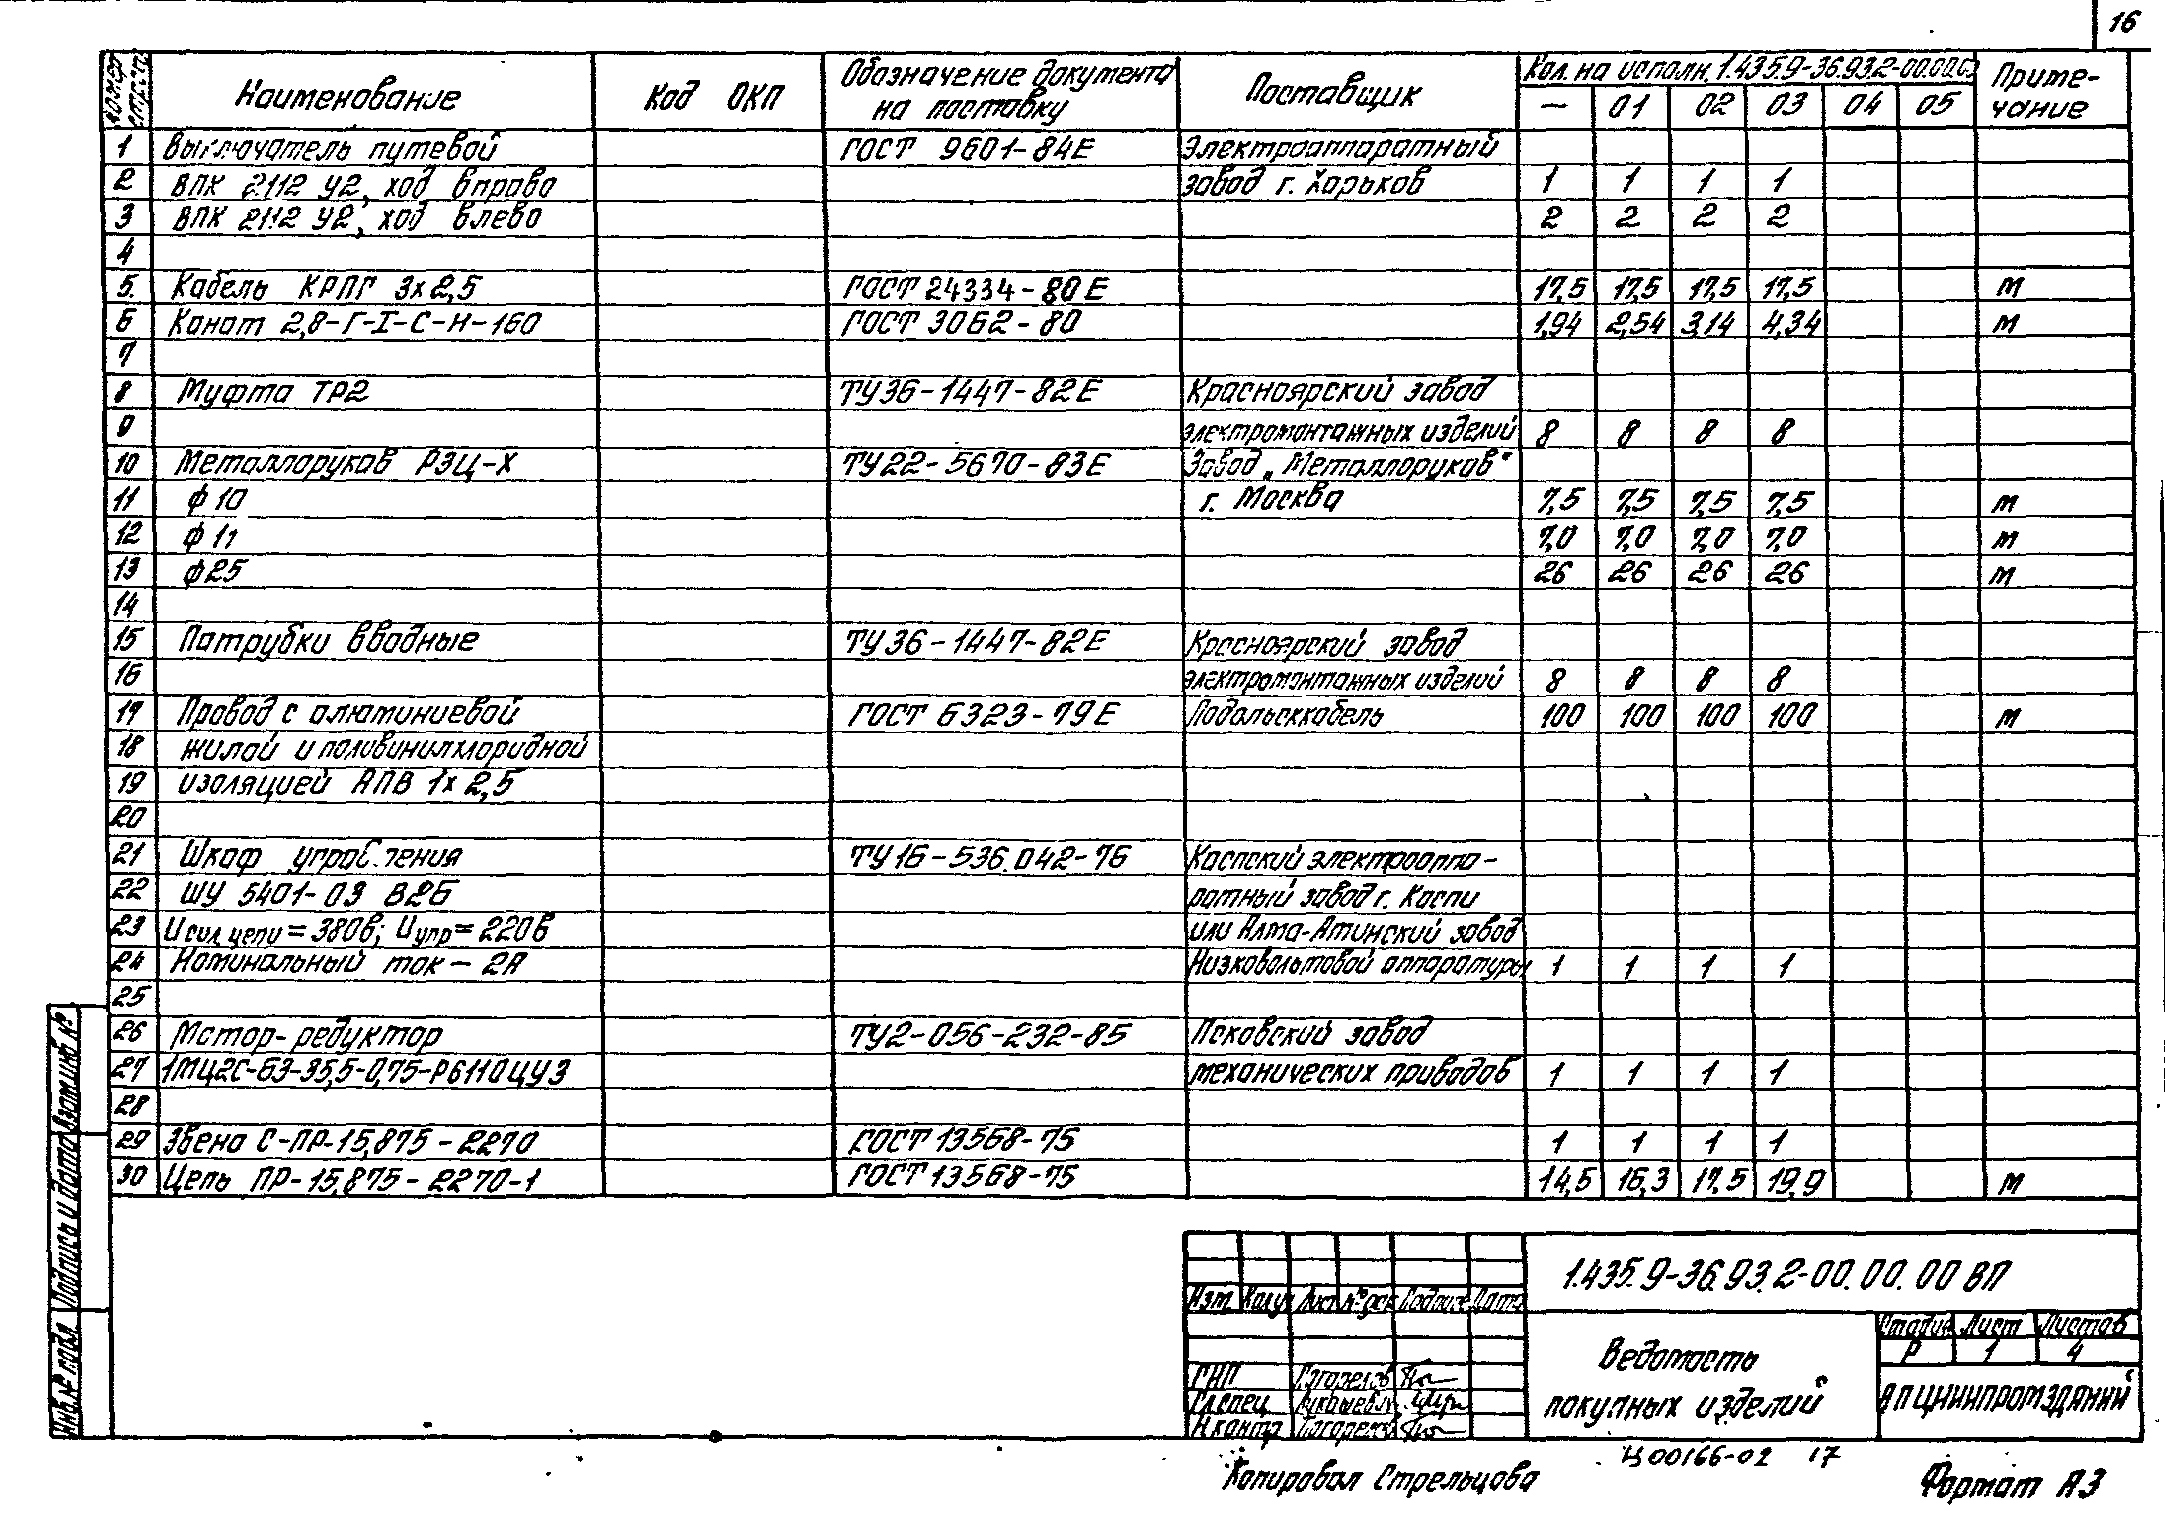 16
№ строки Наименование Код ОКП Обозначение документа на поставку Поставщик Кол. на исполн. 1.435.9-36.93.2-00.00.00 Приме-
чание
— 01 02 03 04 05
1 Выключатель путевой ГОСТ 9601-84Е Электроаппаратный
2 ВПК 2112 У2, ход вправо завод г. Харьков 1 1 1 1
3 ВПК 2112 У2, ход влево 2 2 2 2
4
5 Кабель КРПГ 3х2,5 ГОСТ 24334-80Е 17,5 17,5 17,5 17,5 м
6 Канат 2,8-Г-I-С-Н-160 ГОСТ 3062-80 1,94 2,54 3,14 4,34 м
7
8 Муфта ТР2 ТУ36-1447-82Е Красноярский завод
9 электромонтажных изделий 8 8 8 8
10 Металлорукав РЗЦ-Х ТУ22-5670-83Е Завод „Металлорукав"
11 ф10 г. Москва 7,5 7,5 7,5 7,5 м
12 ф11 7,0 7,0 7,0 7,0 м
13 ф25 26 26 26 26 м
14
15 Патрубки вводные ТУ36-1447-82Е Красноярский завод
16 электромонтажных изделий 8 8 8 8
17 Провод с алюминиевой ГОСТ 6323-79Е Подольсккабель 100 100 100 100 м
18 жилой и поливинилхлоридной
19 изоляцией АПВ 1х2,5
20
21 Шкаф управления ТУ16-536.042-76 Каспский электроаппа-
22 ШУ 5401-03 В2Б ратный завод г. Каспи
23 Uсил.цепи = 380в; Uупр = 220в или Алма-Атинский завод
24 Номинальный ток – 2А Низковольтовой аппаратуры 1 1 1 1
25
26 Мотор-редуктор ТУ2-056-232-85 Псковский завод
27 1МЦ2С-63-35,5-0,75-Р6110ЦУ3 механических приводов 1 1 1 1
28
29 Звено С-ПР-15,875-2270 ГОСТ 13568-75 1 1 1 1
30 Цепь ПР-15,875-2270-1 ГОСТ 13568-75 14,5 16,3 17,5 19,9 м
Взам.инв № Подпись и дата Инв.№ подл
1.435.9-36.93.2-00.00.00 ВП
Изм Кол.уч Лист № док Подпись Дата
Ведомость
покупных изделий
Стадия Лист Листов
Р 1 4
ГИП
Гл.спец
Н.контр
АП ЦНИИПРОМЗДАНИЙ
Ц00166-02 17
Копировал Стрельцова
Формат А3